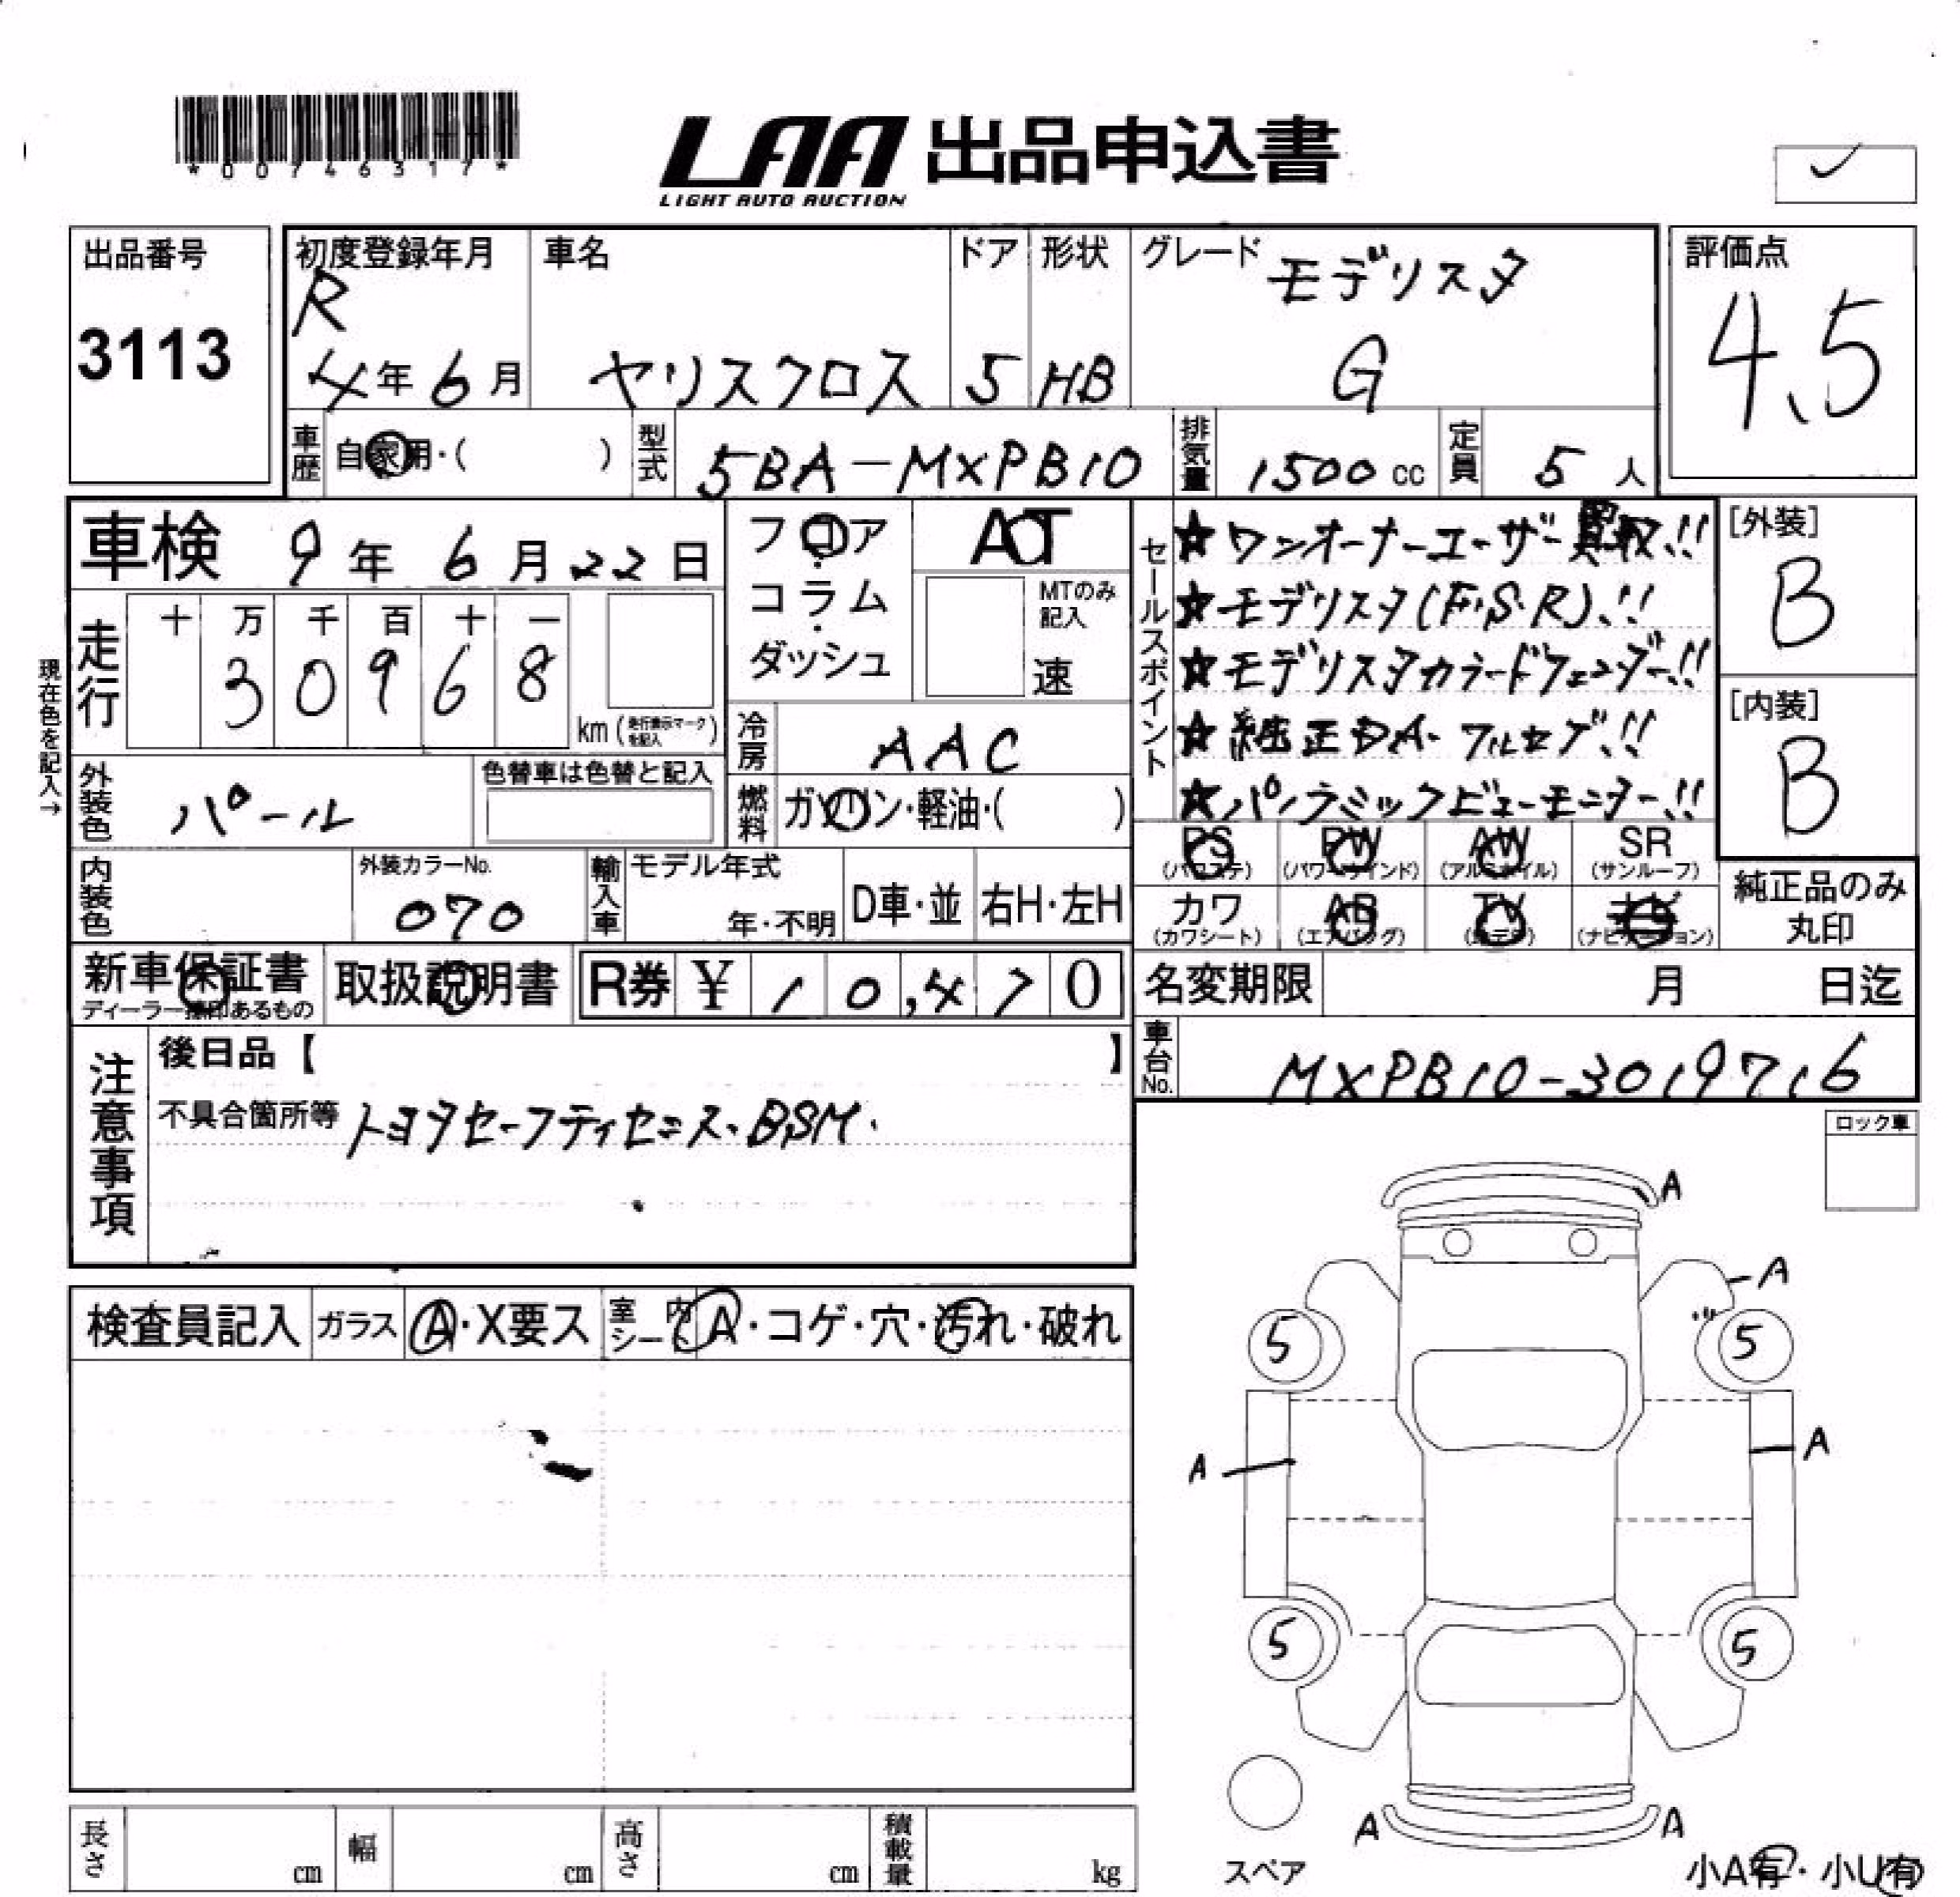 *00746317*
LAA 出品申込書
LIGHT AUTO AUCTION
出品番号
3113
初度登録年月
R
4年6月
車名
ヤリスクロス
ドア
5
形状
HB
グレード モデリスタ
G
評価点
4.5
車歴
自家用・( )
型式
5BA-MXPB10
排気量
1500cc
定員
5人
車検 9年6月22日
フロア
コラム
ダッシュ
AT
MTのみ記入
速
セールスポイント
★ワンオーナーユーザー買取!!
★モデリスタ(F・S・R)!!
★モデリスタカラードフェンダー!!
★純正DA・フルセグ!!
★パノラミックビューモニター!!
[外装]
B
[内装]
B
現在色を記入→
走行
十 万 千 百 十 一
3 0 9 6 8
km(走行表示マークを記入)
冷房
AAC
外装色
パール
色替車は色替と記入
燃料
ガソリン・軽油・( )
PS
(パワステ)
PW
(パワーウインド)
AW
(アルミホイル)
SR
(サンルーフ)
カワ
(カワシート)
AB
(エアバッグ)
TV
ナビ
(ナビゲーション)
純正品のみ
丸印
内装色
外装カラーNo.
070
輸入車
モデル年式
年・不明
D車・並
右H・左H
新車保証書
ディーラー捺印あるもの
取扱説明書
R券 ¥10,470
名変期限 月 日迄
車台No.
MXPB10-3019716
注意事項
後日品【 】
不具合箇所等 トヨタセーフティセンス・BSM・
ロック車
検査員記入
ガラス
A・X要ス
室内シート
A・コゲ・穴・汚れ・破れ
A
A
5
5
A
A
5
5
A
A
スペア
小A有・小U有
長さ
cm
幅
cm
高さ
cm
積載量
kg